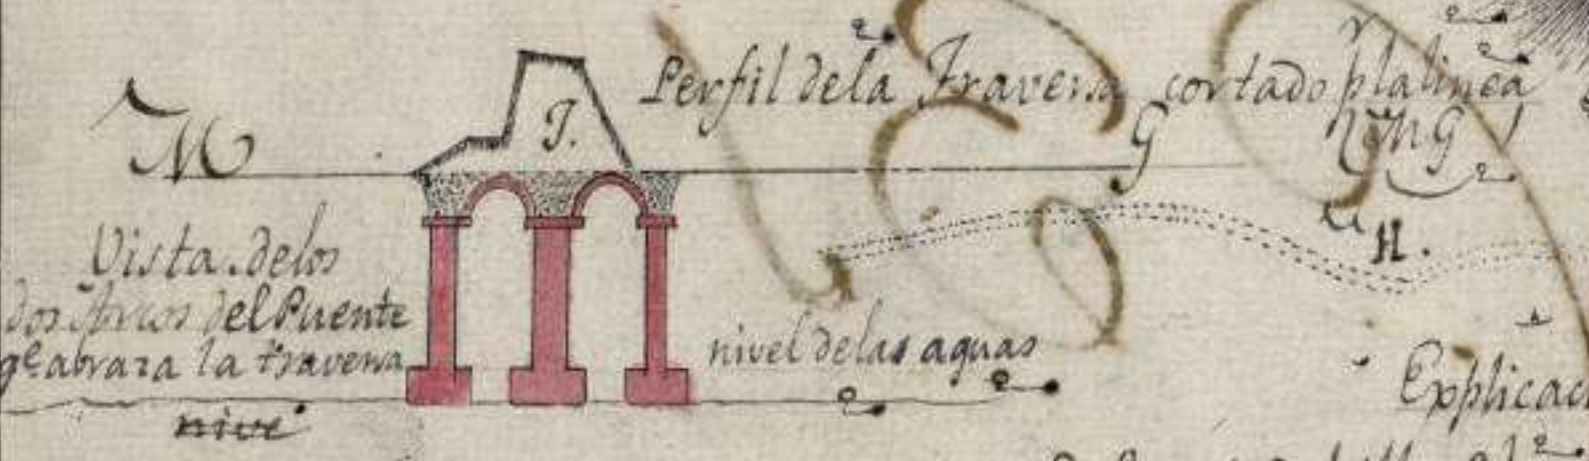 Perfil dela Traversa cortado p la linea
M G
M G
J.
H.
Vista de los
dos Arcos del Puente
qe abraza la traversa
nivel de las aguas
nive
Explicac